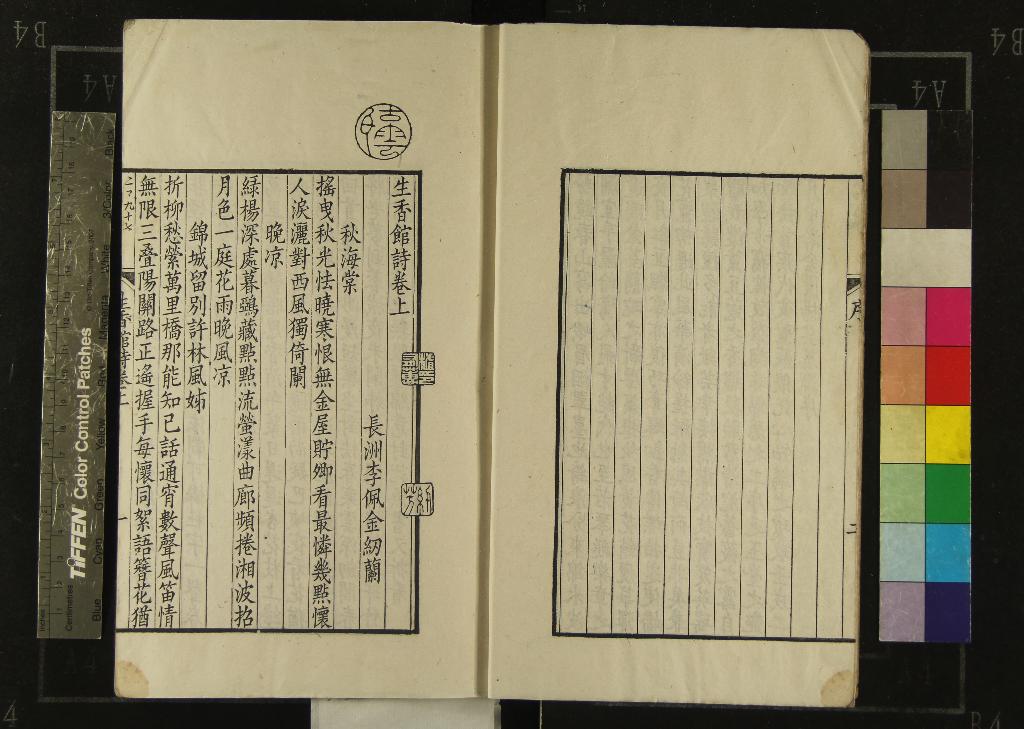 序
二
生香館詩卷上
長洲李佩金紉蘭
秋海棠
搖曳秋光怯曉寒恨無金屋貯卿看最憐幾點懷
人淚灑對西風獨倚闌
晚凉
緑楊深處暮鵶藏點點流螢漾曲廊頻捲湘波招
月色一庭花雨晚風凉
錦城留別許林風姊
折柳愁縈萬里橋那能知己話通宵數聲風笛情
無限三叠陽關路正遙握手每懷同絮語簪花猶
生香館詩卷上
一
TIFFEN Color Control Patches
Inches
Centimetres
Blue
Cyan
Green
Yellow
Red
Magenta
White
3/Color
Black
A4
A4
B4
B4